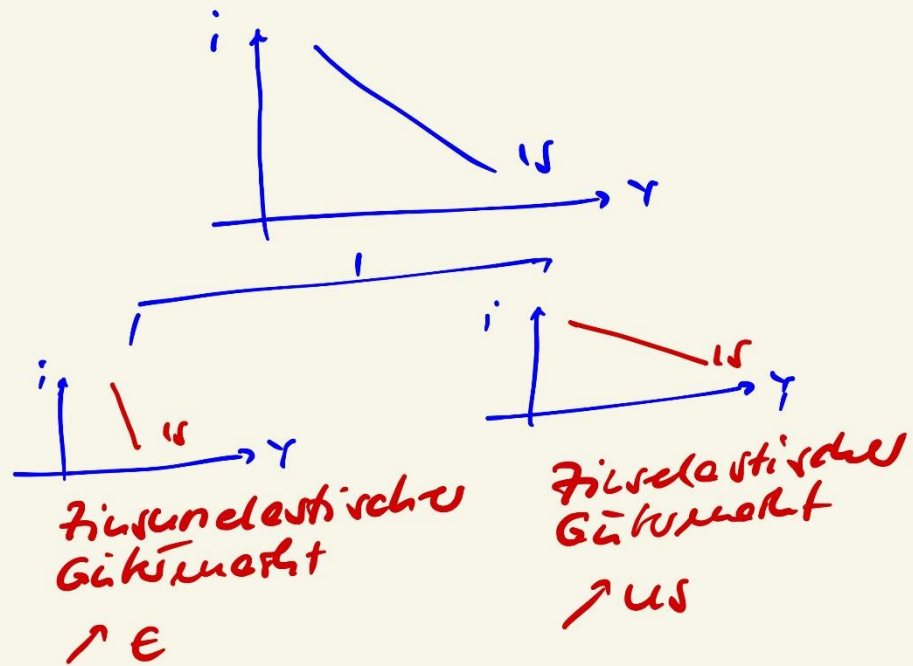 i
IS
Y
i
IS
Y
i
IS
Y
Zinsunelastischer
Gütermarkt
↗ €
Zinselastischer
Gütermarkt
↗ US